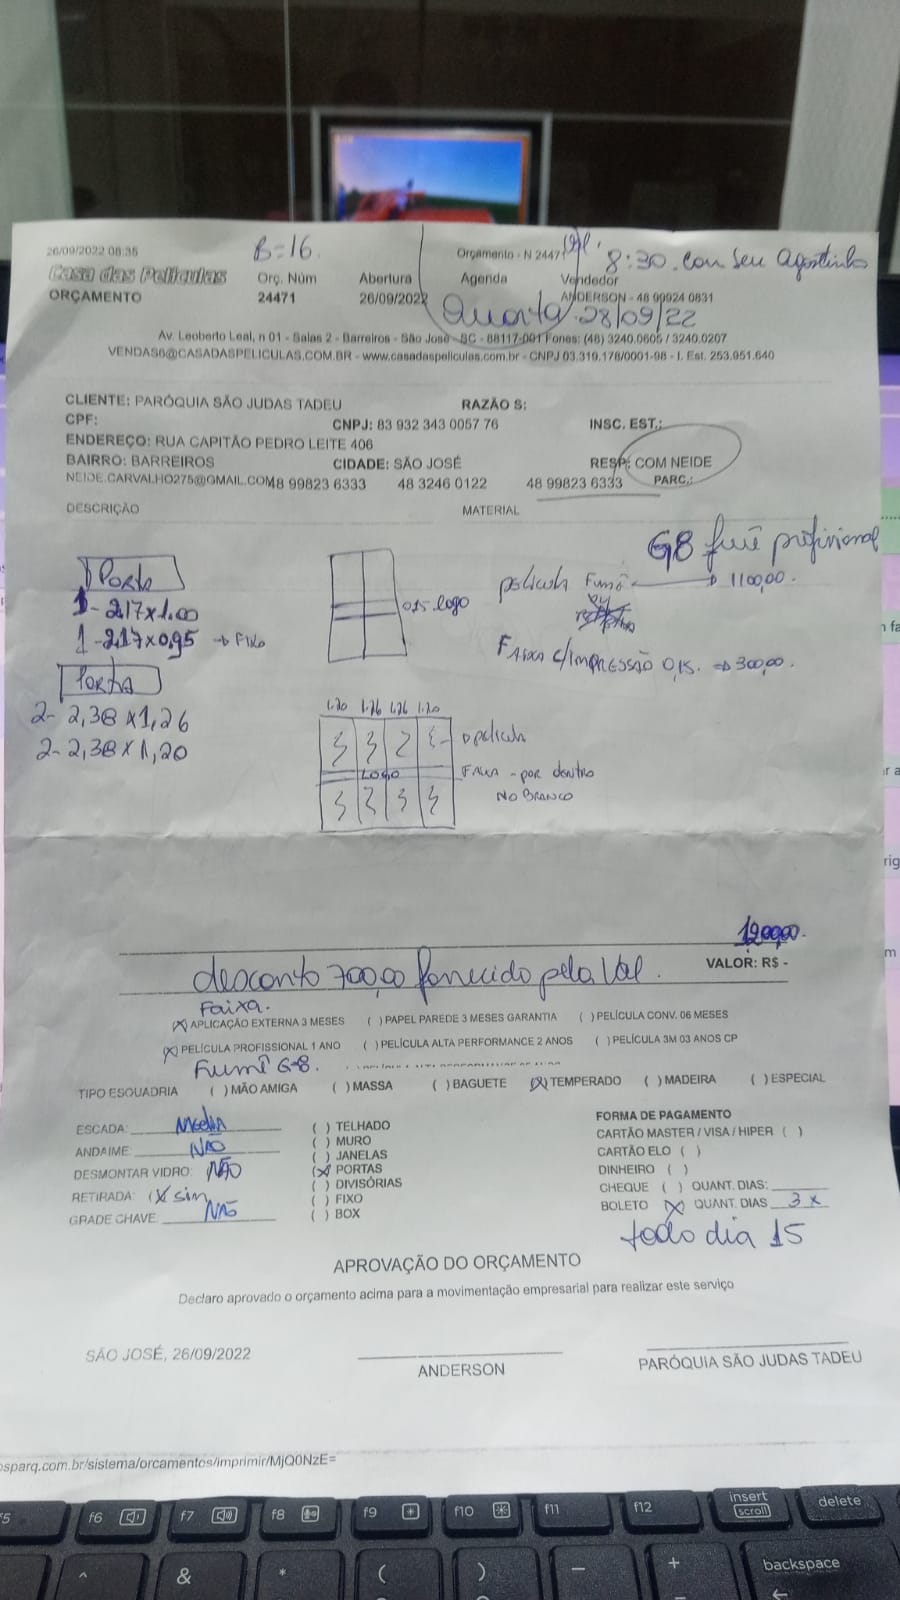 26/09/2022 08:35
B=16
Orçamento - N 24471
8:30. com seu Agostinho
Casa das Películas
Orç. Núm
Abertura
Agenda
Vendedor
ORÇAMENTO
24471
26/09/2022
ANDERSON - 48 99924 0831
Quarta 28/09/22
Av. Leoberto Leal, n 01 - Salas 2 - Barreiros - São José - SC - 88117-001 Fones: (48) 3240.0605 / 3240.0207
VENDAS6@CASADASPELICULAS.COM.BR - www.casadaspeliculas.com.br - CNPJ 03.319.178/0001-98 - I. Est. 253.951.640
CLIENTE: PARÓQUIA SÃO JUDAS TADEU RAZÃO S:
CPF: CNPJ: 83 932 343 0057 76 INSC. EST.:
ENDEREÇO: RUA CAPITÃO PEDRO LEITE 406
BAIRRO: BARREIROS CIDADE: SÃO JOSÉ RESP: COM NEIDE
NEIDE.CARVALHO275@GMAIL.COM 48 99823 6333 48 3246 0122 48 99823 6333 PARC.:
DESCRIÇÃO MATERIAL
G8 fumê profissional
Porta
película Fumê → 1100,00.
1- 2.17x1.00
0.15. logo
1 - 2.17x0,95 → Fixo
FAIXA C/IMPRESSÃO 0,15. → 300,00.
PORTA
2- 2,38 x 1,26
1.20 1.26 1.26 1.20
2- 2,38 x 1,20
película
LOGO
FAIXA - por dentro
NO BRANCO
1200,00.
VALOR: R$ -
desconto 700,00 fornecido pela Val.
Faixa.
(X) APLICAÇÃO EXTERNA 3 MESES ( ) PAPEL PAREDE 3 MESES GARANTIA ( ) PELÍCULA CONV. 06 MESES
(X) PELÍCULA PROFISSIONAL 1 ANO ( ) PELÍCULA ALTA PERFORMANCE 2 ANOS ( ) PELÍCULA 3M 03 ANOS CP
Fumê G-8.
TIPO ESQUADRIA ( ) MÃO AMIGA ( ) MASSA ( ) BAGUETE (X) TEMPERADO ( ) MADEIRA ( ) ESPECIAL
ESCADA: Media
ANDAIME: NÃO
DESMONTAR VIDRO: NÃO
RETIRADA: (X sim
GRADE CHAVE: NÃO
( ) TELHADO
( ) MURO
( ) JANELAS
(X) PORTAS
( ) DIVISÓRIAS
( ) FIXO
( ) BOX
FORMA DE PAGAMENTO
CARTÃO MASTER / VISA / HIPER ( )
CARTÃO ELO ( )
DINHEIRO ( )
CHEQUE ( ) QUANT. DIAS:
BOLETO (X) QUANT. DIAS 3x
todo dia 15
APROVAÇÃO DO ORÇAMENTO
Declaro aprovado o orçamento acima para a movimentação empresarial para realizar este serviço
SÃO JOSÉ, 26/09/2022
ANDERSON
PARÓQUIA SÃO JUDAS TADEU
osparq.com.br/sistema/orcamentos/imprimir/MjQ0NzE=
f5 f6 f7 f8 f9 f10 f11 f12 insert scroll delete
^ & * ( ) - + backspace